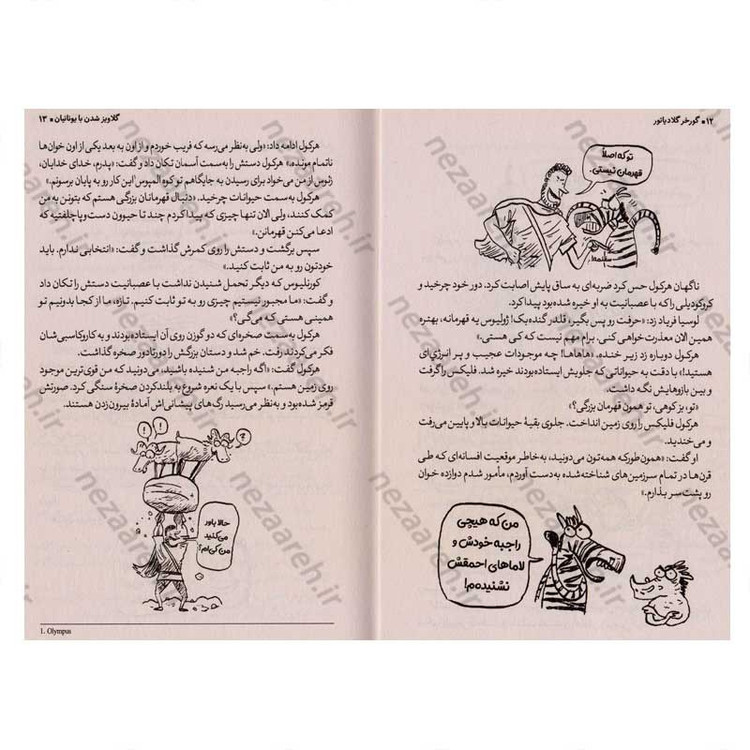 ۱۲ • گورخر گلادیاتور
تو که اصلاً
قهرمان نیستی.
ناگهان هرکول حس کرد ضربه‌ای به ساق پایش اصابت کرد. دور خود چرخید و
کروکودیلی را که با عصبانیت به او خیره شده بود پیدا کرد.
لوسیا فریاد زد: «حرفت رو پس بگیر، قلدر گنده‌بک! ژولیوس یه قهرمانه، بهتره
همین الان معذرت‌خواهی کنی. برام مهم نیست که کی هستی.»
هرکول دوباره زد زیر خنده. «هاهاها! چه موجودات عجیب و پر انرژی‌ای
هستید!» با دقت به حیواناتی که جلویش ایستاده بودند خیره شد. فلیکس را گرفت
و بین بازوهایش نگه داشت.
«تو، بز کوهی، تو همون قهرمان بزرگی؟»
هرکول فلیکس را روی زمین انداخت. جلوی بقیهٔ حیوانات بالا و پایین می‌رفت
و می‌خندید.
او گفت: «همون‌طور که همه‌تون می‌دونید، به‌خاطر موقعیت افسانه‌ای که طی
قرن‌ها در تمام سرزمین‌های شناخته‌شده به‌دست آوردم، مأمور شدم دوازده خوان
رو پشت سر بذارم.»
من که هیچی
راجبه خودش و
لاماهای احمقش
نشنیده‌م!
گلاویز شدن با یونانیان • ۱۳
هرکول ادامه داد: «ولی به‌نظر می‌رسه که فریب خوردم و از اون به بعد یکی از اون خوان‌ها
ناتمام مونده.» هرکول دستش را به‌سمت آسمان تکان داد و گفت: «پدرم، خدای خدایان،
زئوس از من می‌خواد برای رسیدن به جایگاهم تو کوه المپوس¹ این کار رو به پایان برسونم.»
هرکول به‌سمت حیوانات چرخید. «دنبال قهرمانان بزرگی هستم که بتونن به من
کمک کنند، ولی الان تنها چیزی که پیدا کردم چند تا حیوون دست‌وپاچلفتیه که
ادعا می‌کنن قهرمانن.»
سپس برگشت و دستش را روی کمرش گذاشت و گفت: «انتخابی ندارم. باید
خودتون رو به من ثابت کنید.»
کورنلیوس که دیگر تحمل شنیدن نداشت با عصبانیت دستش را تکان داد
و گفت: «ما مجبور نیستیم چیزی رو به تو ثابت کنیم. تازه، ما از کجا بدونیم تو
همینی هستی که می‌گی؟»
هرکول به‌سمت صخره‌ای که دو گوزن روی آن ایستاده بودند و به کاروکاسبی‌شان
فکر می‌کردند رفت. خم شد و دستان بزرگش را دورتادور صخره گذاشت.
هرکول گفت: «اگه راجبه من شنیده باشید، می‌دونید که من قوی‌ترین موجود
روی زمین هستم.» سپس با یک نعره شروع به بلند کردن صخرهٔ سنگی کرد. صورتش
قرمز شده بود و به‌نظر می‌رسید رگ‌های پیشانی‌اش آمادهٔ بیرون‌زدن هستند.
! ! ?
حالا باور
می‌کنید
من کی‌ام؟
1. Olympus
nezaareh.ir